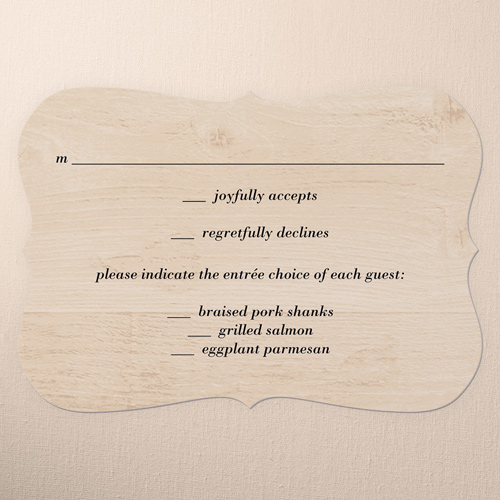 m ________________________
___ joyfully accepts
___ regretfully declines
please indicate the entrée choice of each guest:
___ braised pork shanks
___ grilled salmon
___ eggplant parmesan